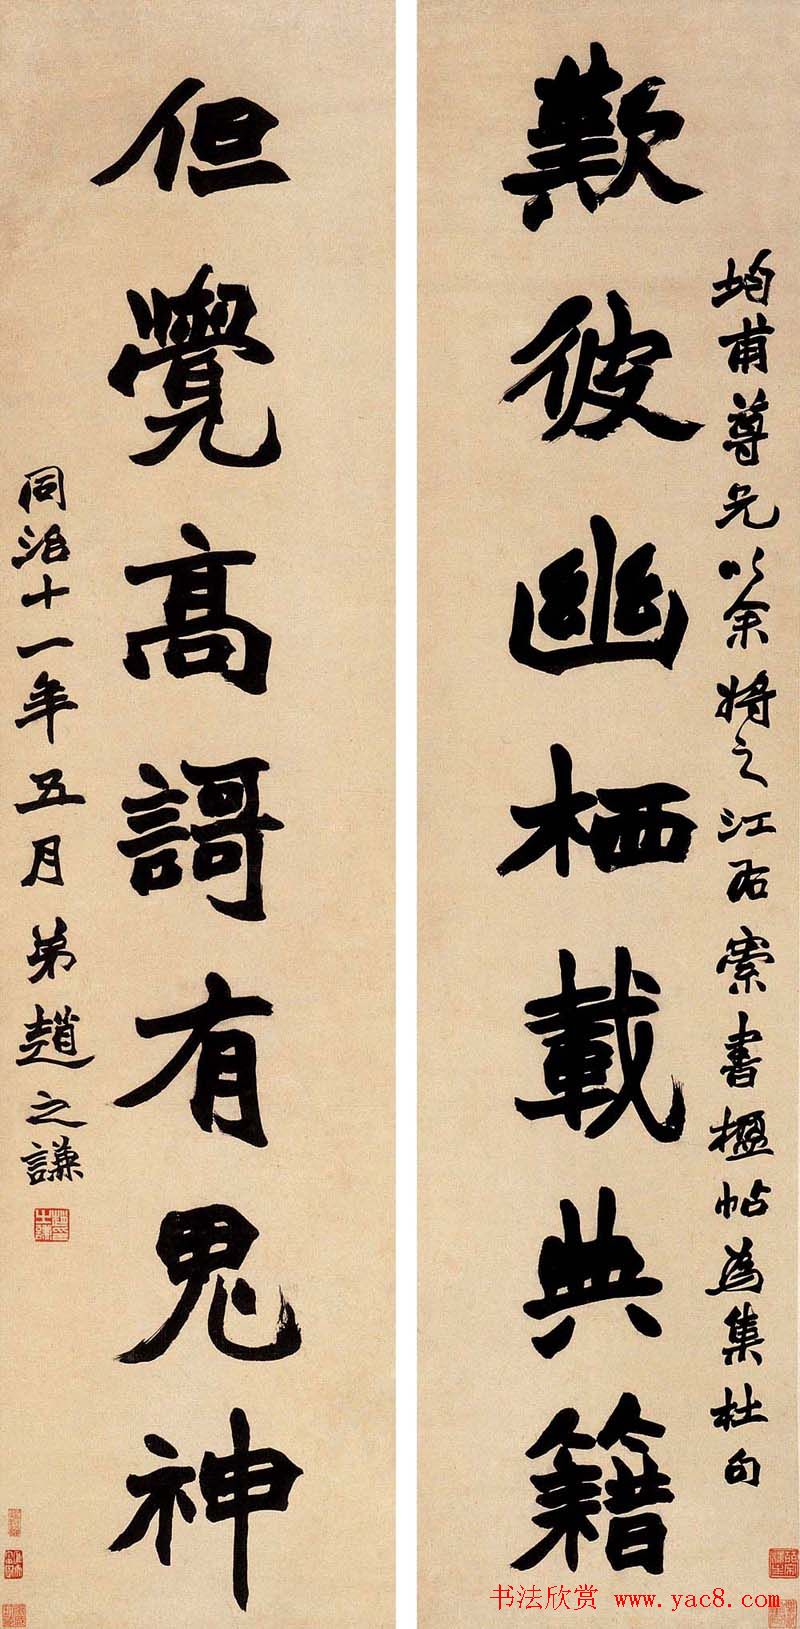 均甫尊兄以余将之江右索書楹帖為集杜句
歎彼幽栖載典籍
但覺高謌有鬼神
同治十一年五月弟趙之謙
书法欣赏 www.yac8.com